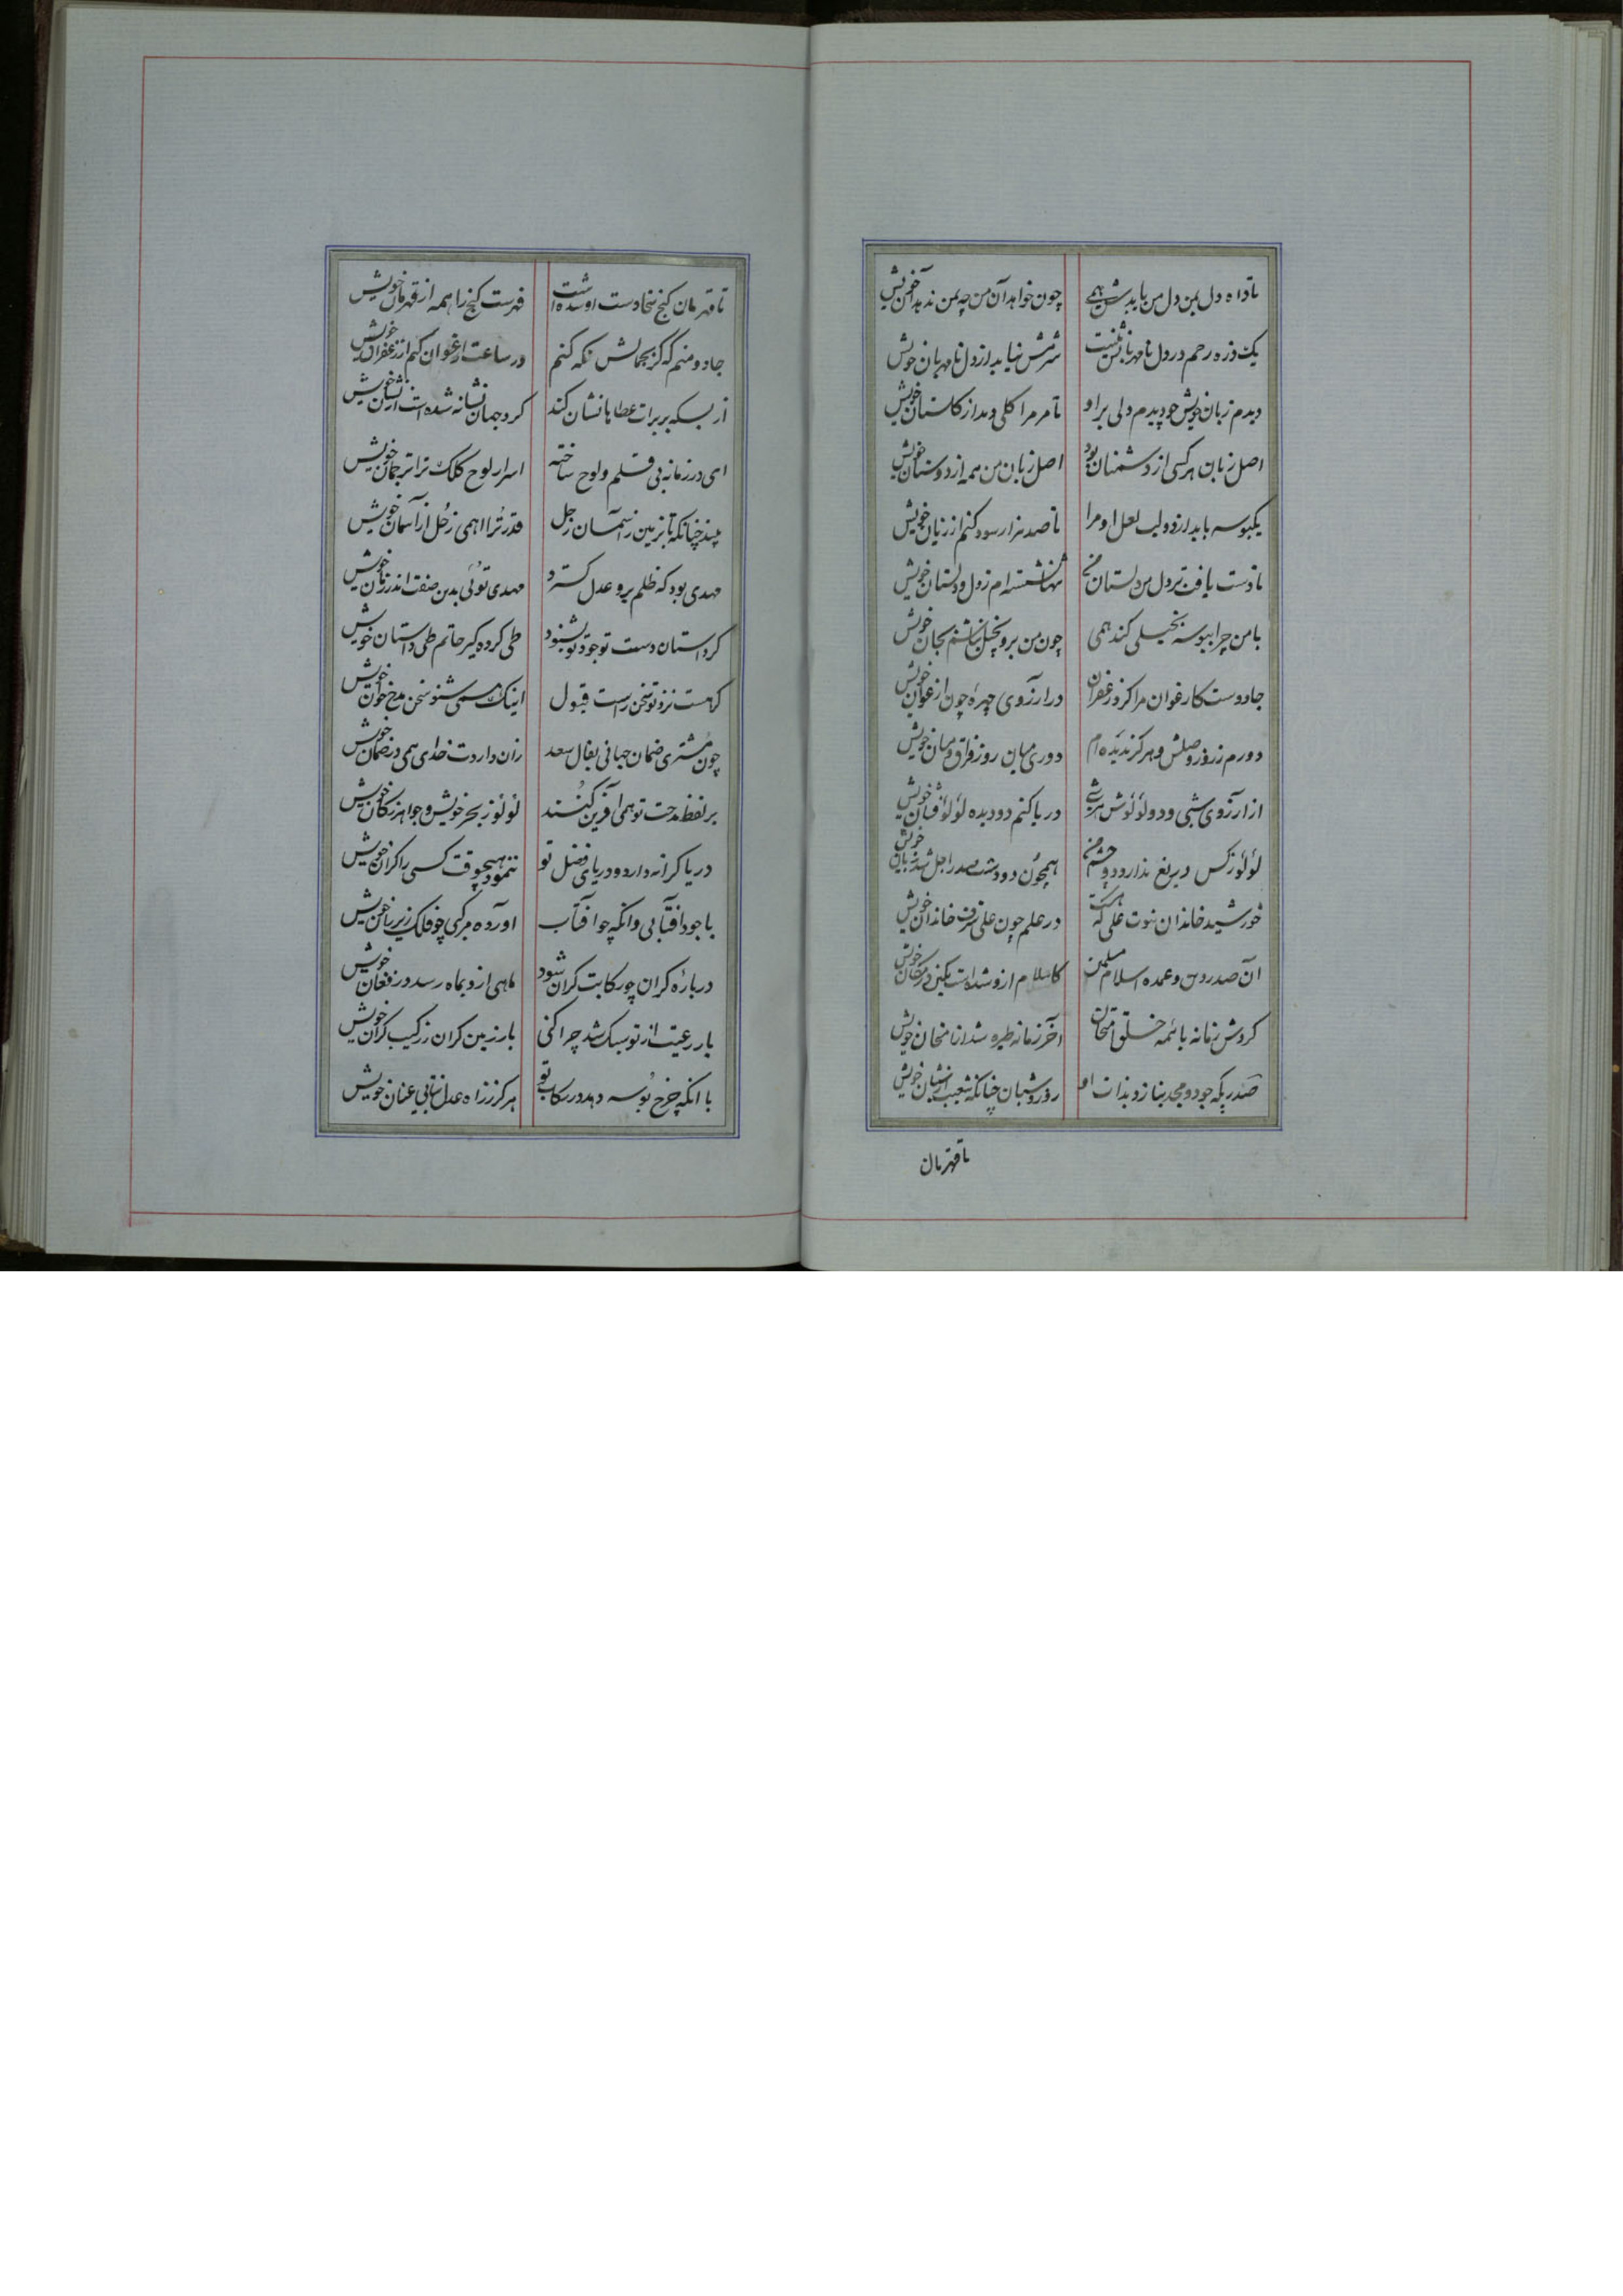 تا داده دل بمن دل من باید شهمی چون خواهد آن من چه بمن ندهد آن خویش
یک ذره رحم در دل نامهربانش نیست شرمش نیاید از دل نامهربان خویش
دیدم زیان خویش چو دیدم ولی براو تا مر مرا کلی دمد از کلستان خویش
اصل زیان هر کسی از دشمنان بود اصل زیان من همه از دوستان خویش
یکبوسه باید از دو لب لعل او مرا تا صد هزار سود کنم از زیان خویش
تا دست یافت بر دل من دلستان من تنها نشسته ام ز دل و دلستان خویش
با من چرا ببوسه بخیلی کند همی چون من برو بخیل نباشم بجان خویش
جادوست کارغوان مرا کرد زعفران در ارزوی چهره چون ارغوان خویش
دورم ز روز وصلش و هرکز ندیده ام دوری میان روز فراق و میان خویش
از ارزوی شبی و دو لؤلؤش هر شبی دریا کنم دو دیده لؤلؤ فشان خویش
لؤلؤ ز کس دریغ ندارد دو چشم من همچون دو دست صدر اجل خویش
خورشید خاندان نبوت علی که هست در علم چون علی شرف خاندان خویش
آن صدر دین و عمده اسلام کاسلام ازو شده است مکین در مکان خویش
کردش زمانه با ئمه خلق امتحان آخر زمانه طیره شد از امتحان خویش
صدریکه جود و مجد بنازد بذات او روز و شبان چنانکه شعیب از شبان خویش
تا قهرمان
تا قهرمان کنج سخا دست او شده است فهرست کنج را همه از قهرمان خویش
جادو منم که کر بجمالش نکه کنم در ساعت ارغوان کنم از زعفران خویش
از بسکه بر برات عطاها نشان کند کرد جهان نشانه شده است از نشان خویش
ای در زمانه بی قلم و لوح ساخته اسرار لوح کلک ترا ترجمان خویش
بیند چنانکه تا بزمین ز آسمان زحل قدر ترا همی زحل از آسمان خویش
مهدی بود که ظلم برد عدل کسترد مهدی توئی بدین صفت اندر زمان خویش
کر داستان دست تو جود تو بشنود طی کرده کیر حاتم طی داستان خویش
کر هست نزد تو سخن راست قبول اینک همی شنو سخن مدح خوان خویش
چون مشتری ضمان جهانی بفال سعد زان داردت خدای همی در ضمان خویش
بر لفظ مدحت تو همی آفرین کنند لؤلؤ ز بحر خویش و جواهر ز کان خویش
دریا کرانه دارد و دریای فضل تو ننمود هیچوقت کسی را کران خویش
با جود افتابی وانکه چو افتاب اورده مرکبی چو فلک زیر ران خویش
در باره کران چو رکابت کران شود ماهی ازو بماه رسد در فغان خویش
بار رعیت از تو سبک شد چرا کنی بار زمین کران ز رکیب کران خویش
با انکه چرخ بوسه دهد در رکاب تو هرکز ز راه عدل نتابی عنان خویش